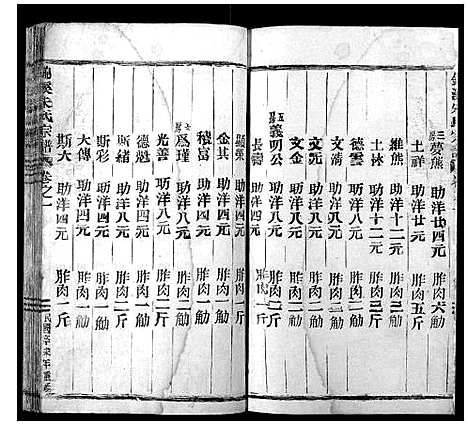 三房 夢熊 助洋廿四元 胙肉六觔
士祥 助洋廿元 胙肉五斤
維熊 助洋十二元 胙肉三觔
士林 助洋十二元 胙肉三斤
德雲 助洋八元 胙肉二觔
文清 助洋八元 胙肉二斤
文元 助洋八元 胙肉二觔
文金 助洋八元 胙肉二斤
五房 義明公 助洋四元 胙肉一觔
長壽 助洋四元 胙肉一斤
顯張 助洋四元 胙肉一斤
金其 助洋四元 胙肉一觔
積富 助洋四元 胙肉一觔
七房 爲瑾 助洋八元 胙肉二觔
光善 助洋八元 胙肉二斤
德魁 助洋八元 胙肉二觔
斯緒 助洋八元 胙肉二斤
斯彩 助洋四元 胙肉一觔
大傳 助洋四元 胙肉一觔
斯大 助洋四元 胙肉一斤
朱氏宗譜 卷之一
民國辛未年重